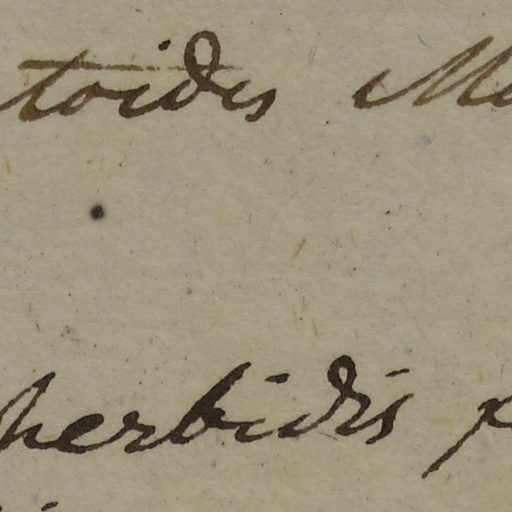 toides M
herbidis p